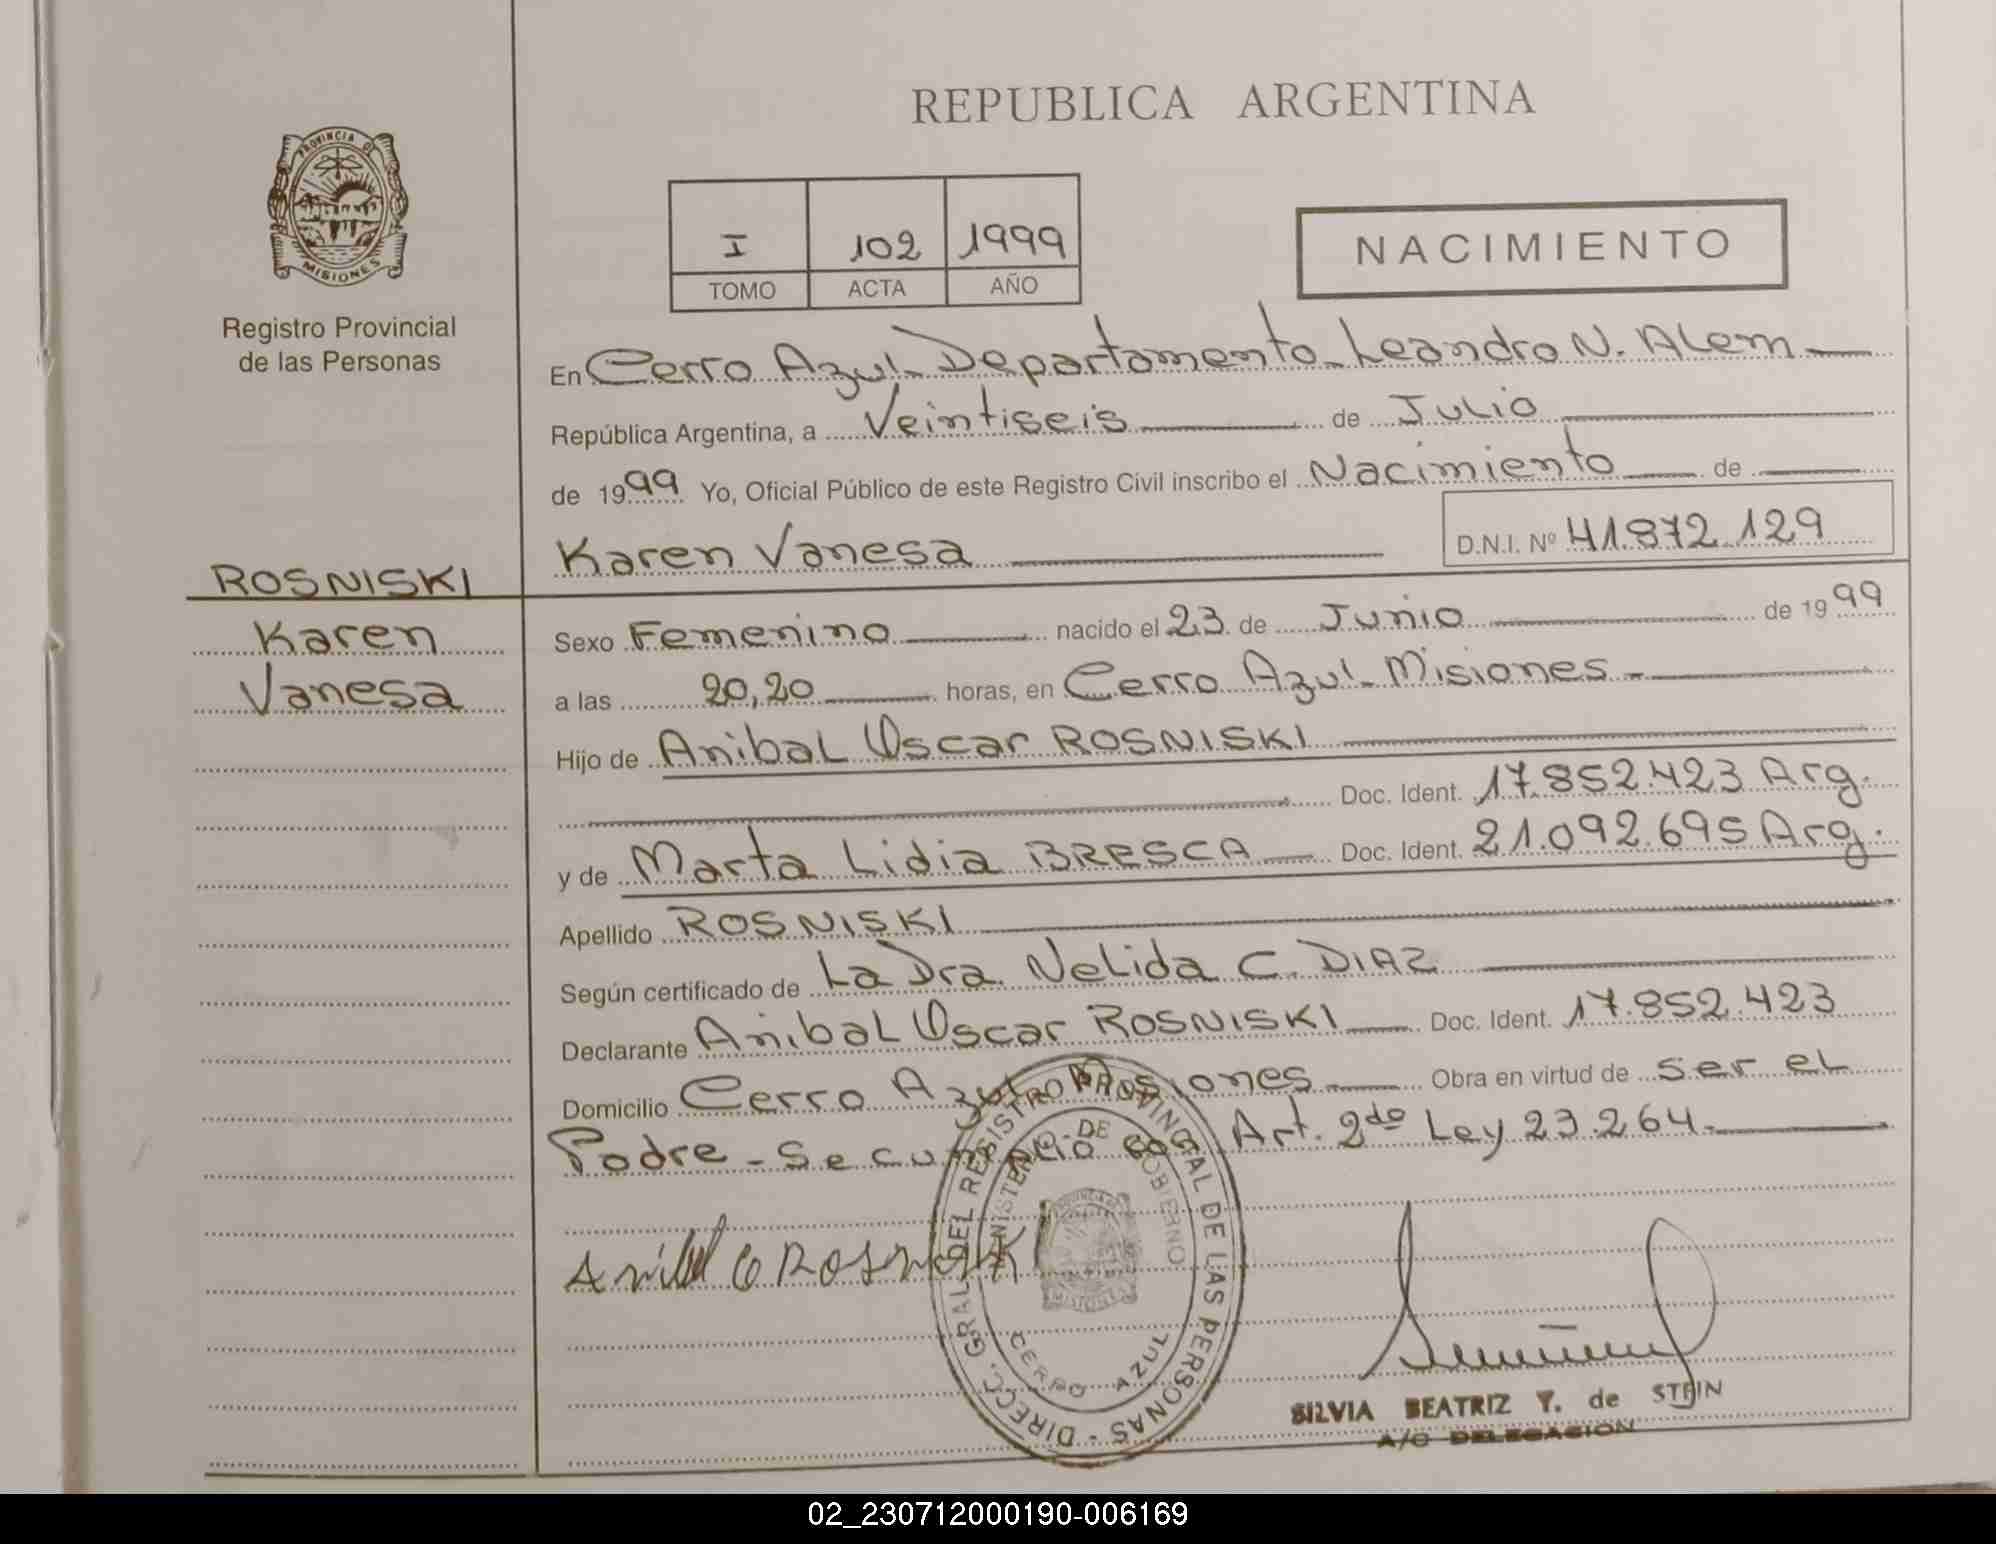 REPUBLICA ARGENTINA
PROVINCIA DE
MISIONES
Registro Provincial
de las Personas
I 102 1999
TOMO ACTA AÑO
NACIMIENTO
En Cerro Azul - Departamento Leandro N. Alem
República Argentina, a Veintiseis de Julio
de 1999 Yo, Oficial Público de este Registro Civil inscribo el Nacimiento de
Karen Vanesa D.N.I. Nº 41.872.129
ROSNISKI
Karen
Vanesa
Sexo Femenino nacido el 23 de Junio de 1999
a las 20,20 horas, en Cerro Azul - Misiones -
Hijo de Anibal Oscar ROSNISKI
Doc. Ident. 17.852.423 Arg.
y de Marta Lidia BRESCA Doc. Ident. 21.092.695 Arg.
Apellido ROSNISKI
Según certificado de La Dra. Nelida C. DIAZ
Declarante Anibal Oscar ROSNISKI Doc. Ident. 17.852.423
Domicilio Cerro Azul Misiones Obra en virtud de ser el
Padre - Se cumplió con Art. 2do Ley 23.264.
DIRECC. GRAL. DEL REGISTRO PROVINCIAL DE LAS PERSONAS -
MINISTERIO DE GOBIERNO
PROVINCIA DE
MISIONES
CERRO AZUL
SILVIA BEATRIZ Y. de STEIN
A/C DELEGACION
02_230712000190-006169